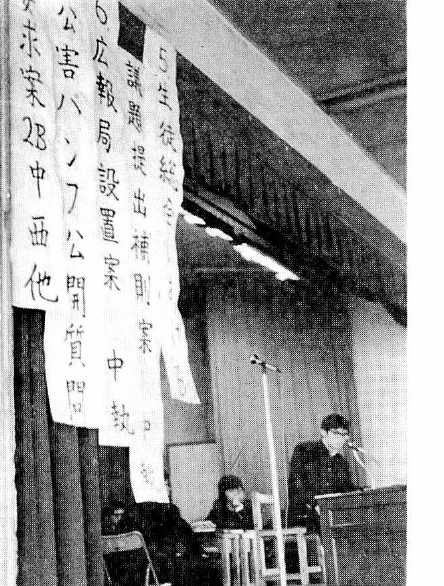 5生徒総会
議題提出補則案
6広報局設置案 中執
公害パンフ公開質問
求案2B中西他